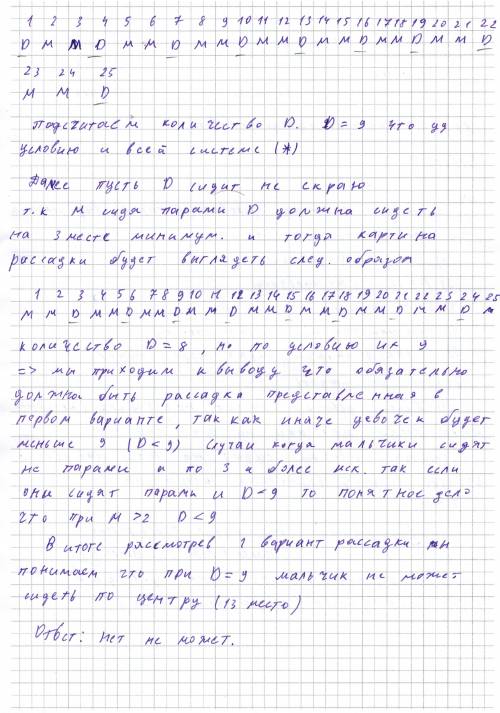 1 2 3 4 5 6 7 8 9 10 11 12 13 14 15 16 17 18 19 20 21 22
D M M D M M D M M D M M D M M D M M D M M D
23 24 25
M M D
Подсчитаем количество D. D = 9 что уд
условию и всей системе (*)
Далее пусть D сидит не скраю
т.к М сидя парами D должна сидеть
на 3 месте минимум. и тогда картина
рассадки будет выглядеть след. образом
1 2 3 4 5 6 7 8 9 10 11 12 13 14 15 16 17 18 19 20 21 22 23 24 25
M M D M M D M M D M M D M M D M M D M M D M M D M
количество D = 8, но по условию их 9
=> мы приходим к выводу что обязательно
должна быть рассадка представленная в
первом варианте, так как иначе девочек будет
меньше 9 (D < 9) Случаи когда мальчики сидят
не парами а по 3 и более иск. так если
они сидят парами и D < 9 то понятное дело
что при М >2 D < 9
В итоге рассмотрев 1 вариант рассадки мы
понимаем что при D = 9 мальчик не может
сидеть по центру (13 место)
Ответ: нет не может.